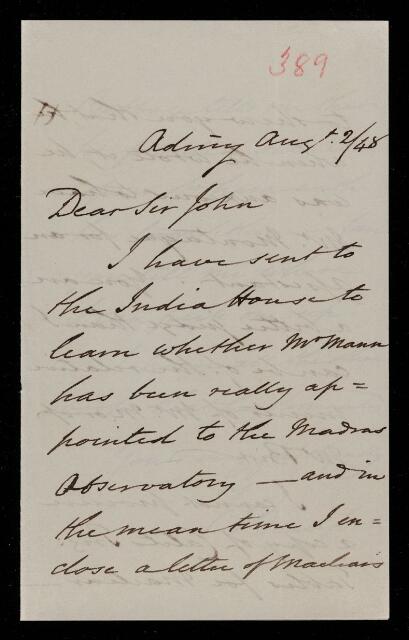 389
Admty Augt. 2/48
Dear Sir John
I have sent to
the India House to
learn whether Mr Mann
has been really ap=
pointed to the Madras
Observatory — and in
the mean time I en=
close a letter of Maclears